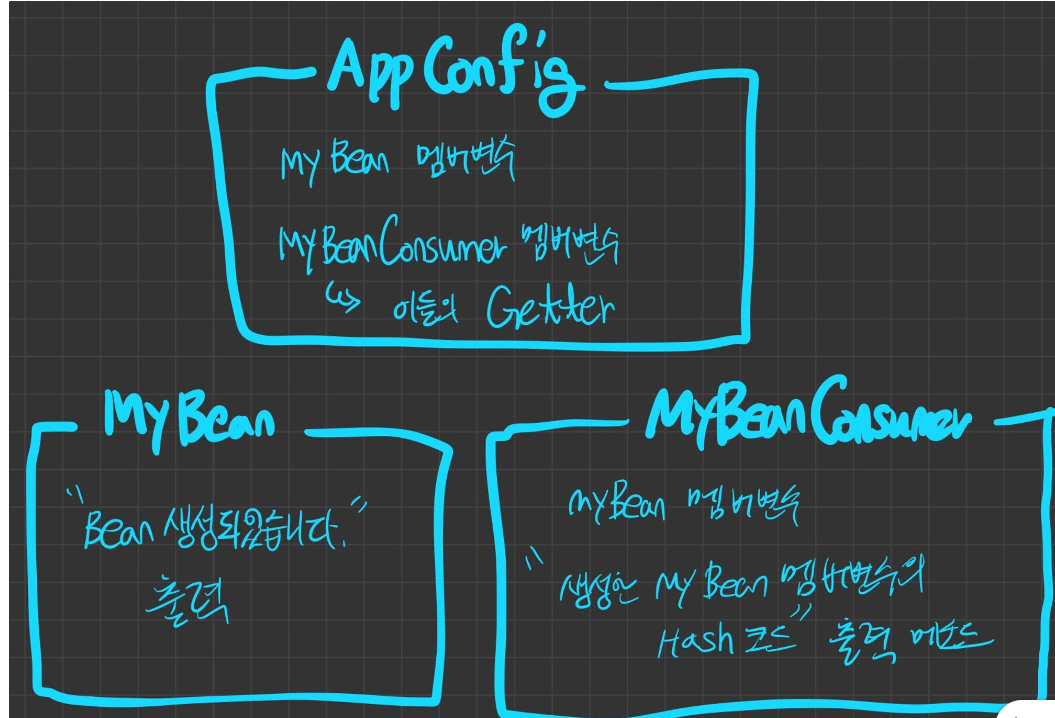 AppConfig
My Bean 멤버변수
MyBeanConsumer 멤버변수
↳ 이들의 Getter
My Bean
"Bean 생성되었습니다."
출력
MyBeanConsumer
myBean 멤버변수
"생성한 My Bean 멤버변수의
Hash 코드" 출력 메소드